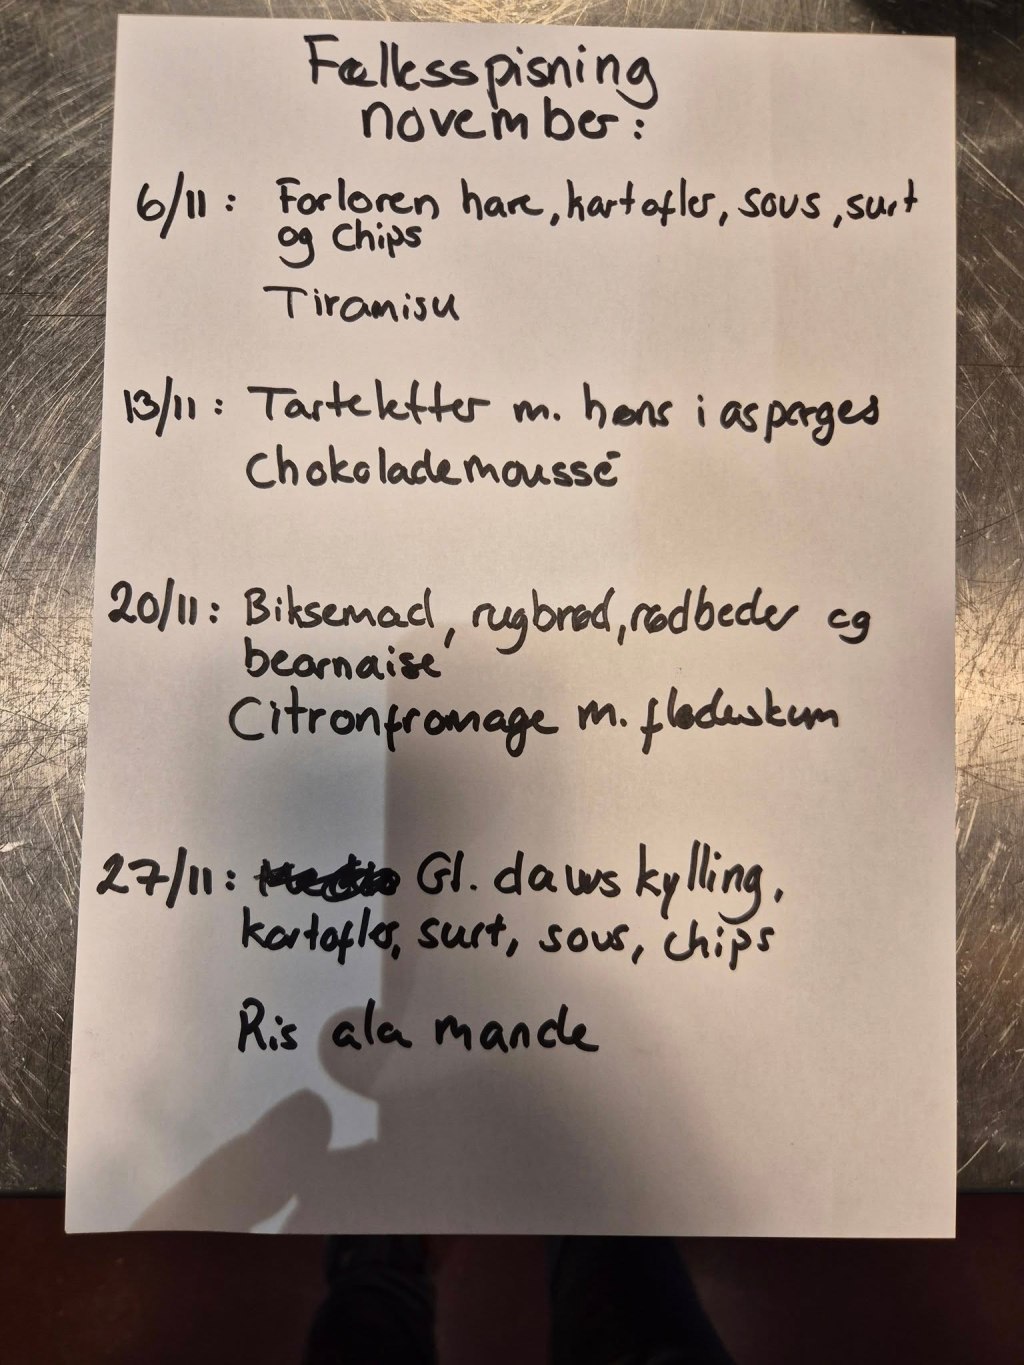 Fællesspisning
november:
6/11: Forloren hare, kartofler, sovs, surt
og chips
Tiramisu
13/11: Tarteletter m. høns i asparges
Chokolademoussé
20/11: Biksemad, rugbrød, rødbeder og
bearnaise
Citronfromage m. flødeskum
27/11: Gl. daws kylling,
kartofler, surt, sovs, chips
Ris ala mande